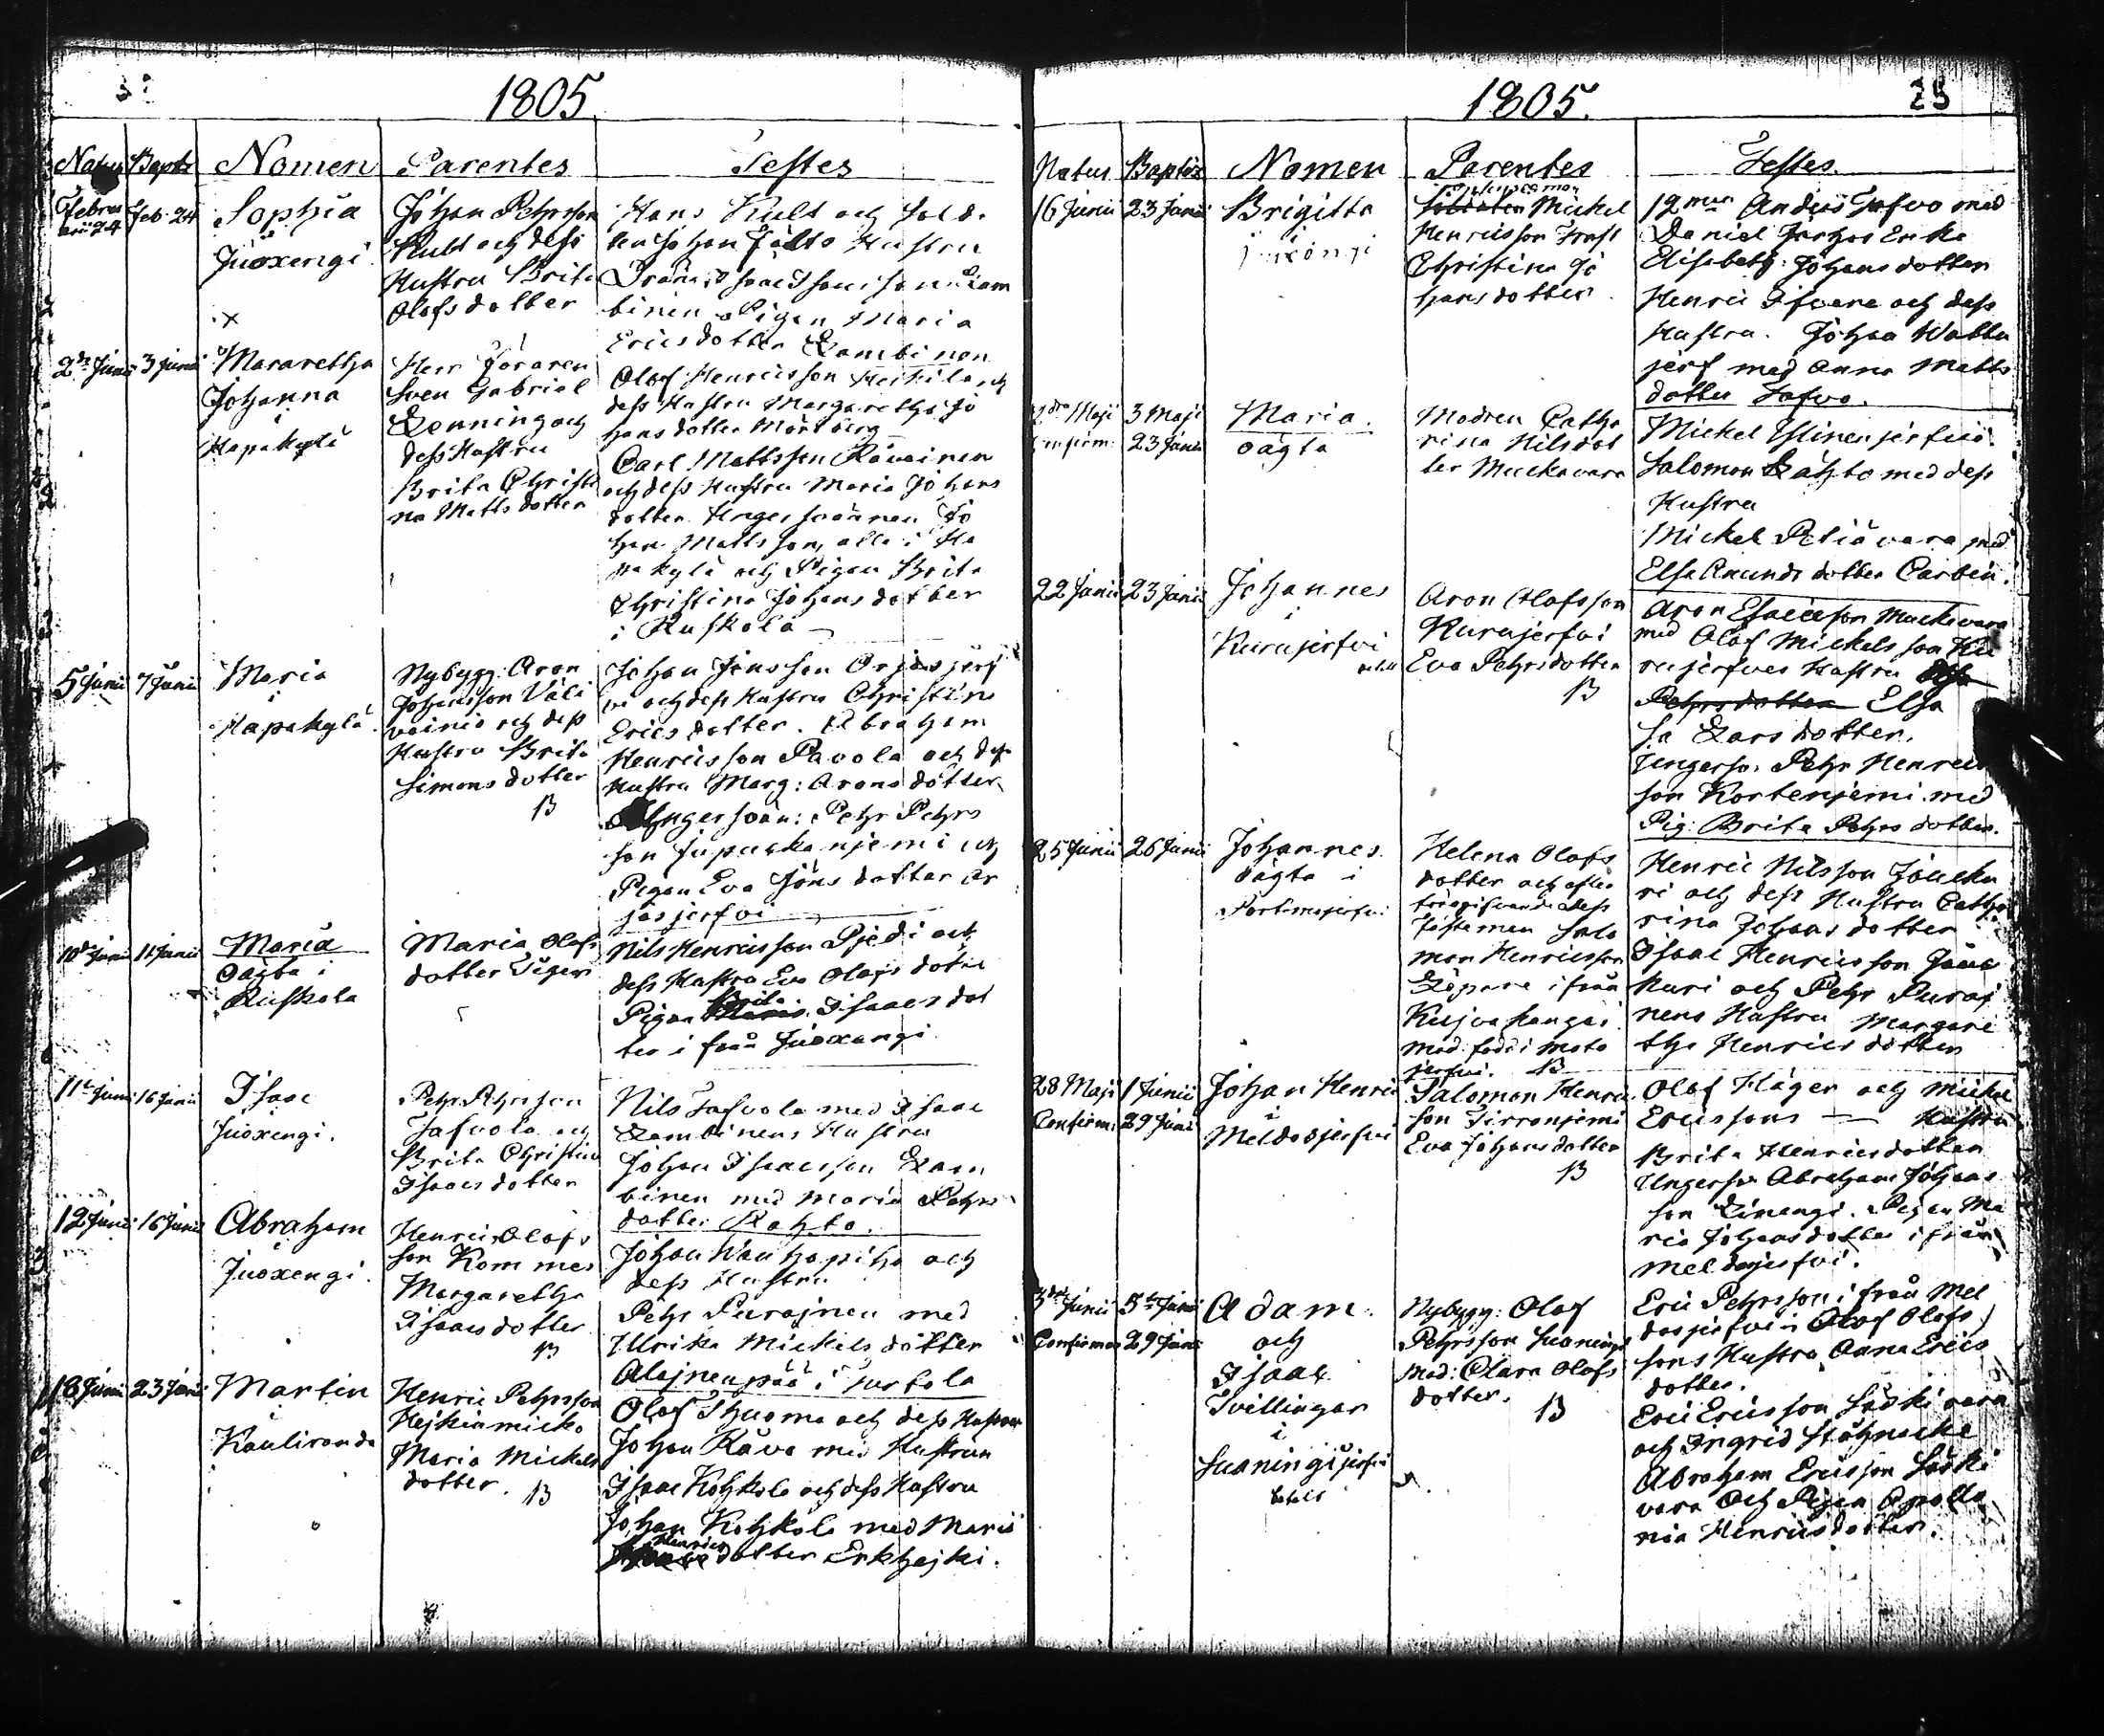 1805.
Natus Baptiz Nomen Parentes Testes
Februarii 24 Feb. 24 Sophia
i
Juoxengi.
Johan Pehrsson
Kult och dess
Hustru Brita
Olofs dotter
Hans Kult och Solda
ten Johan Fälts Hustru
binen Pigan Maria
Erics dotter Lambinen
2dr Junii 3 Junii Mararetha
Johanna
i
Hapakylä
Herr
Sven Gabriel
Lenning och
dess Hustru
Brita Christi
na Matts dotter
Olof Henricsson Heikila och
dess Hustru Margaretha Jo
hans dotter Mörtberg
Carl Mattsson Räuainen
och dess Hustru Maria Johans
dotter. Unger
han Mattsson, alla i Ha
pakylä och Pigan Brita
Christina Johans dotter
i Ruskola
5 Junii 7 Junii Maria
i
Hapakylä.
Nybygg: Aron
Johansson Väli
vainio och dess
Hustru Brita
Simons dotter
B
Johan Jönsson Orjasjerf
vi och dess Hustru Christina
Erics dotter. Abraham
Henricsson Pavola och dess
Hustru Marg: Arons dotter
Ungersvän: Pehr Pehrs
son Jupuckanjemi och
Pigan Eva Jöns dotter Or
jasjerfvi
10de Junii 11 Junii Maria
oägta i
Ruskola
Maria Olofs
dotter
Nils Henricsson Pjedi och
dess Hustru Eva Olofs dotter
Pigan Brita Isaacs dot
ter i från Juoxangi
11te Junii 16 Junii Isaac
i
Juoxengi.
Pehr Pehrsson
Tafvola och
Brita Christina
Isaacs dotter
Nils Tafvola med Isaac
Lambinens Hustru
Johan Isaacsson Lam
binen med Maria Pehrs
dotter Rahto.
12 Junii 16 Junii Abraham
i
Juoxengi.
Henric Olofs
son Kommes
Margaretha
Isaacs dotter
B
Johan Wanhapiha och
dess Hustru
Pehr Purajnen med
Ulrika Mickels dotter
Alajnenpää i Turtola
16 Junii 23 Junii Martin
i
Kauliranda
Henric Pehrsson
Hejkinmicko
Maria Mickels
dotter. B
Olof Thuomo och dess Hustru
Johan Räva med Hustrun
Isaac Kohkola och dess Hustru
Johan Kohkola med Maria
Henrics dotter Erkhejki.
1805. 25
Natus Baptiz Nomen Parentes Testes.
16 Junii 23 Junii Brigitta
i
Soldaten Mickel
Henricsson Frast
Christina Jo
hans dotter
12man Anders Tafvo med
Daniel Jarhos Enka
Elisabeth Johans dotter
Henric Ifvara och dess
Hustru. Johan Watta
jerf med Anna Matts
dotter Tafvo.
2dra Maji 3 Maji Maria.
Confirm. 23 Junii oägta
Modren Catha
rina Nilsdot
ter Muckavara
Mickel Yllinenjerfvi
Salomon Lahto med dess
Hustru
Mickel Petiävara med
Elsa Amunds dotter Carbin.
22 Junii 23 Junii Johannes
i
Kurajerfvi
Aron Olofsson
Kurajerfvi
Eva Pehrsdotter
B
Aron Esaiesson Muckavara
med Olof Mickelsson Ku
rajerfves Hustru
Pehrsdotter Elsa
Lars dotter.
Pehr Henrics
son Kortenjemi med
Pig: Brita Pehrs dotter.
25 Junii 26 Junii Johannes
oägta i
Portimojerfvi
Helena Olofs
dotter och efter
dess
Fästeman Salo
mon Henricsson
Löpare i från
Kuivakangas.
Henric Nilsson Jäucku
ri och dess Hustru Catha
rina Johans dotter
Isaac Henricsson Jäuc
kuri och Pehr Puraj
nens Hustru Margare
tha Henrics dotter
28 Maji 1 Junii Johan Henric
Confirm: 29 Junii i
Meldosjerfvi
Salomon Henric
son Tirronjemi
Eva Johans dotter
B
Olof Häger och Mickel
Ericssons Hustru
Brita Henricsdotter
Ungersv Abraham Johans
son Linengi. Pigan Ma
ria Johansdotter i från
Meldosjerfvi.
3die Junii 5te Junii Adam
Confirmer 29 Junii och
Isaac.
Tvillingar
i
Suaningijerfvi
betalt
Nybygg: Olof
Pehrsson Suaningi
Mod: Clara Olofs
dotter. B
Eric Pehrsson i från Mel
dosjerfvi Olof Olofs
sons Hustru Anna Erics
dotter.
Eric Ericsson Saskivara
och Ingrid Stålnacke
Abraham Ericsson Saski
vara och Pigan Apollo
nia Henricsdotter.